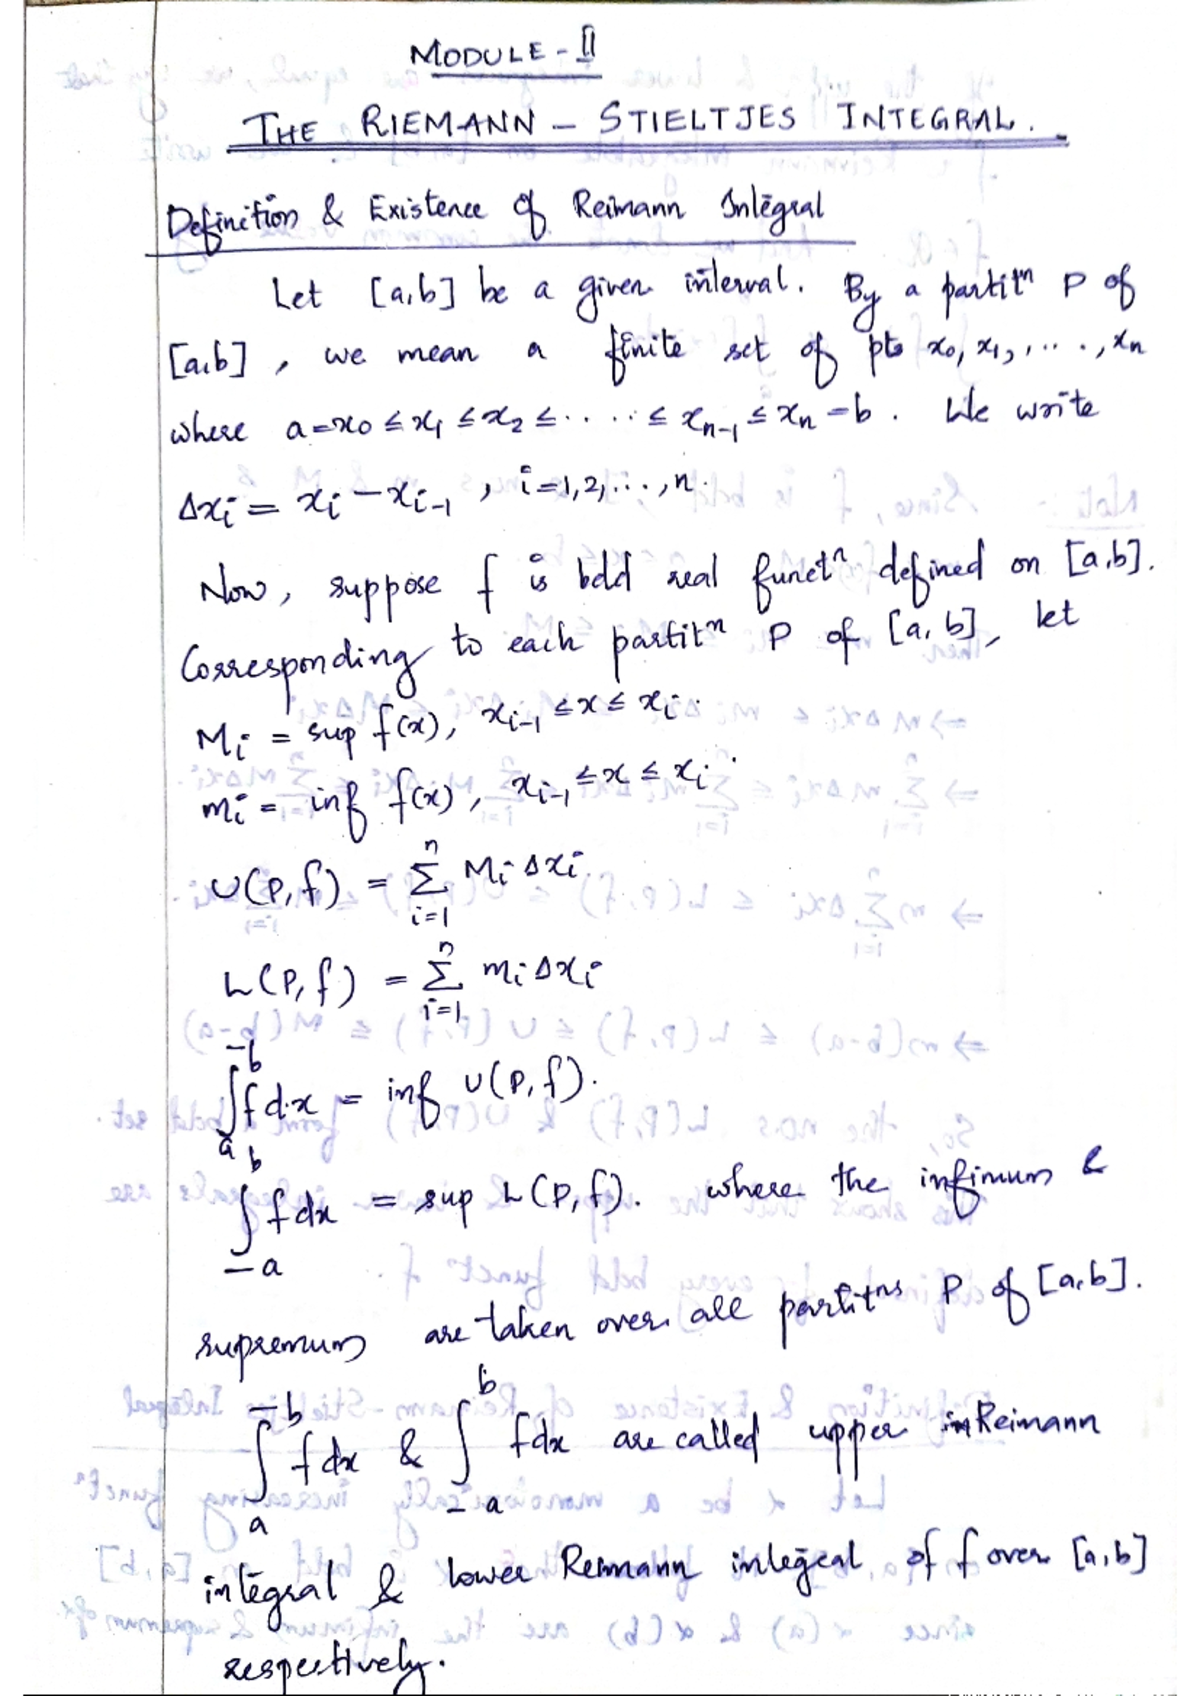 MODULE - II
THE RIEMANN - STIELTJES INTEGRAL.
Definition & Existence of Reimann Integral
Let [a,b] be a given interval. By a partitⁿ P of
[a,b], we mean a finite set of pts x₀, x₁, ...., xₙ
where a=x₀ ≤ x₁ ≤ x₂ ≤ ..... ≤ xₙ₋₁ ≤ xₙ = b. We write
Δxᵢ = xᵢ - xᵢ₋₁, i=1,2,...,n.
Now, suppose f is bdd real functⁿ defined on [a,b].
Corresponding to each partitⁿ P of [a,b], let
Mᵢ = sup f(x), xᵢ₋₁ ≤ x ≤ xᵢ.
mᵢ = inf f(x), xᵢ₋₁ ≤ x ≤ xᵢ.
U(P,f) = ∑ᵢ₌₁ⁿ Mᵢ Δxᵢ.
L(P,f) = ∑ᵢ₌₁ⁿ mᵢ Δxᵢ
∫ₐ⁻ᵇ f dx = inf U(P,f).
∫₋ₐᵇ f dx = sup L(P,f). where the infimum &
supremum are taken over all partitⁿˢ P of [a,b].
∫ₐ⁻ᵇ f dx & ∫₋ₐᵇ f dx are called upper Reimann
integral & lower Reimann integral of f over [a,b]
respectively.